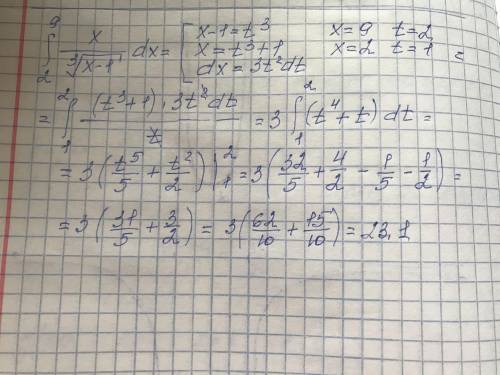 ∫₂⁹ x/∛(x-1) dx = [ x-1=t³ x=9 t=2
x=t³+1 x=2 t=1
dx=3t²dt =
= ∫₁² (t³+1)·3t²dt/t = 3 ∫₁² (t⁴+t) dt =
= 3 (t⁵/5 + t²/2) |₁² = 3 (32/5 + 4/2 - 1/5 - 1/2) =
= 3 (31/5 + 3/2) = 3 (62/10 + 15/10) = 23,1